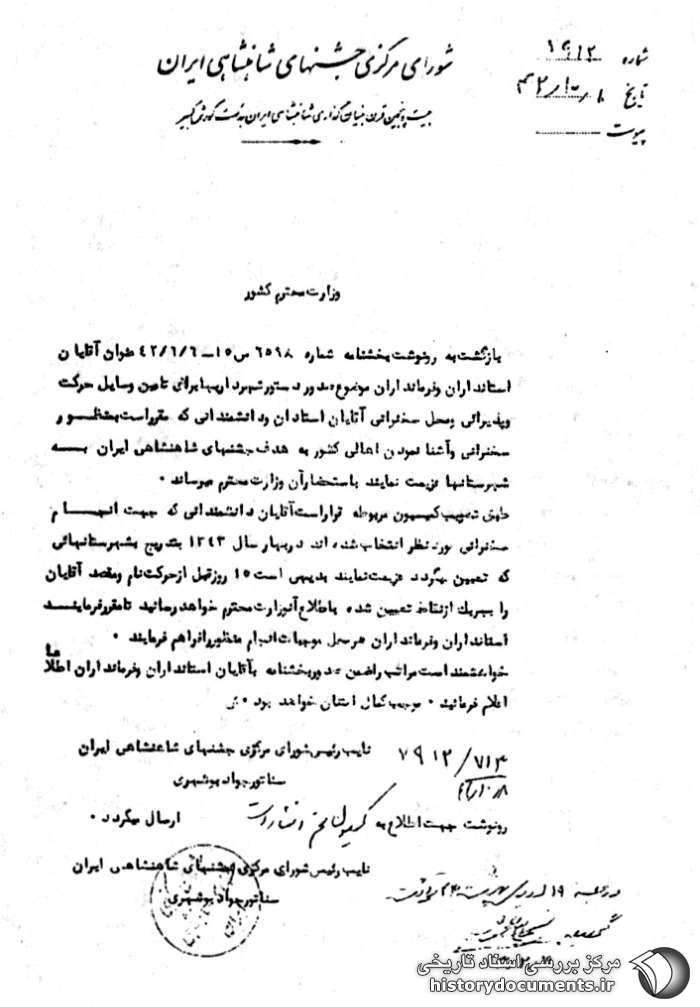 شورای مرکزی جشنهای شاهنشاهی ایران
بیست و پنجمین قرن بنیان گذاری شاهنشاهی ایران بدست کورش کبیر
شماره ۷۹۱۲
تاریخ ۴۲٫۱۰٫۸
پیوست
وزارت محترم کشور
بازگشت به رونوشت بخشنامه شماره ۶۵۹۸ س ۱۵ـ ۴۲/۶/۶ عنوان آقایان
استانداران و فرمانداران موضوع صدور دستور شهرداریها برای تامین وسایل حرکت
و پذیرائی و محل سخنرانی آقایان استادان و دانشمندانی که مقرر است بمنظور
سخنرانی و آشنا نمودن اهالی کشور به هدف جشنهای شاهنشاهی ایران بــه
شهرستانها عزیمت نمایند باستحضار آن وزارت محترم میرساند ۰
طبق تصویب کمیسیون مربوطه قرار است آقایان دانشمندانی که جهت انجــام
سخنرانی مورد نظر انتخاب شده اند در بهار سال ۱۳۴۳ بتدریج بشهرستانهائی
که تعیین میگردد عزیمت نمایند بدیهی است ۱۵ روز قبل از حرکت نام و مقصد آقایان
را بهریک از نقاط تعیین شده باطلاع آنوزارت محترم خواهد رسانید تا مقرر فرمایند
استانداران و فرمانداران هر محل موجبات انجام منظور را فراهم فرمایند ۰
خواهشمند است مراتب را ضمن صدور بخشنامه بآقایان استانداران و فرمانداران اطلاعا
اعلام فرمائید ۰ موجب کمال امتنان خواهد بود ۰
نایب رئیس شورای مرکزی جشنهای شاهنشاهی ایران
سناتور جواد بوشهری
۷۹۱۲/۷۱۴
رونوشت جهت اطلاع به کمیسیون انتشارات ارسال میگردد ۰
نایب رئیس شورای مرکزی جشنهای شاهنشاهی ایران
سناتور جواد بوشهری
مرکز بررسی اسناد تاریخی
historydocuments.ir